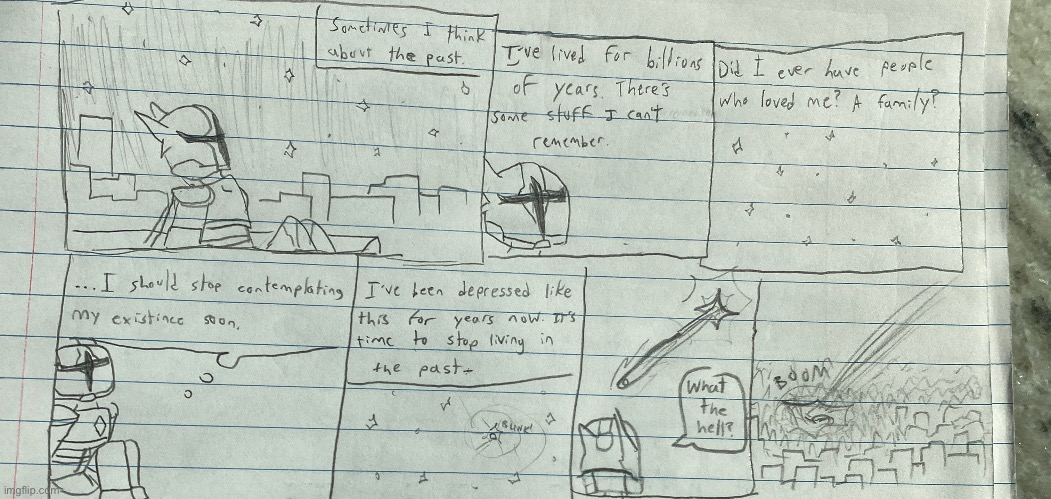 Sometimes I think
about the past.
I've lived for billions
of years. There's
some stuff I can't
remember.
Did I ever have people
who loved me? A family?
...I should stop contemplating
my existince soon.
I've been depressed like
this for years now. It's
time to stop living in
the past-
BLINK!
What
the
hell?
BOOM
imgflip.com